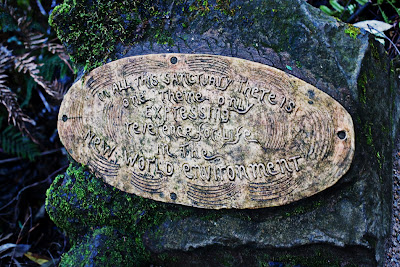 IN ALL THIS SANCTUARY THERE IS
ONE THEME ONLY
EXPRESSING
reverence for Life
in the
NEW WORLD environment